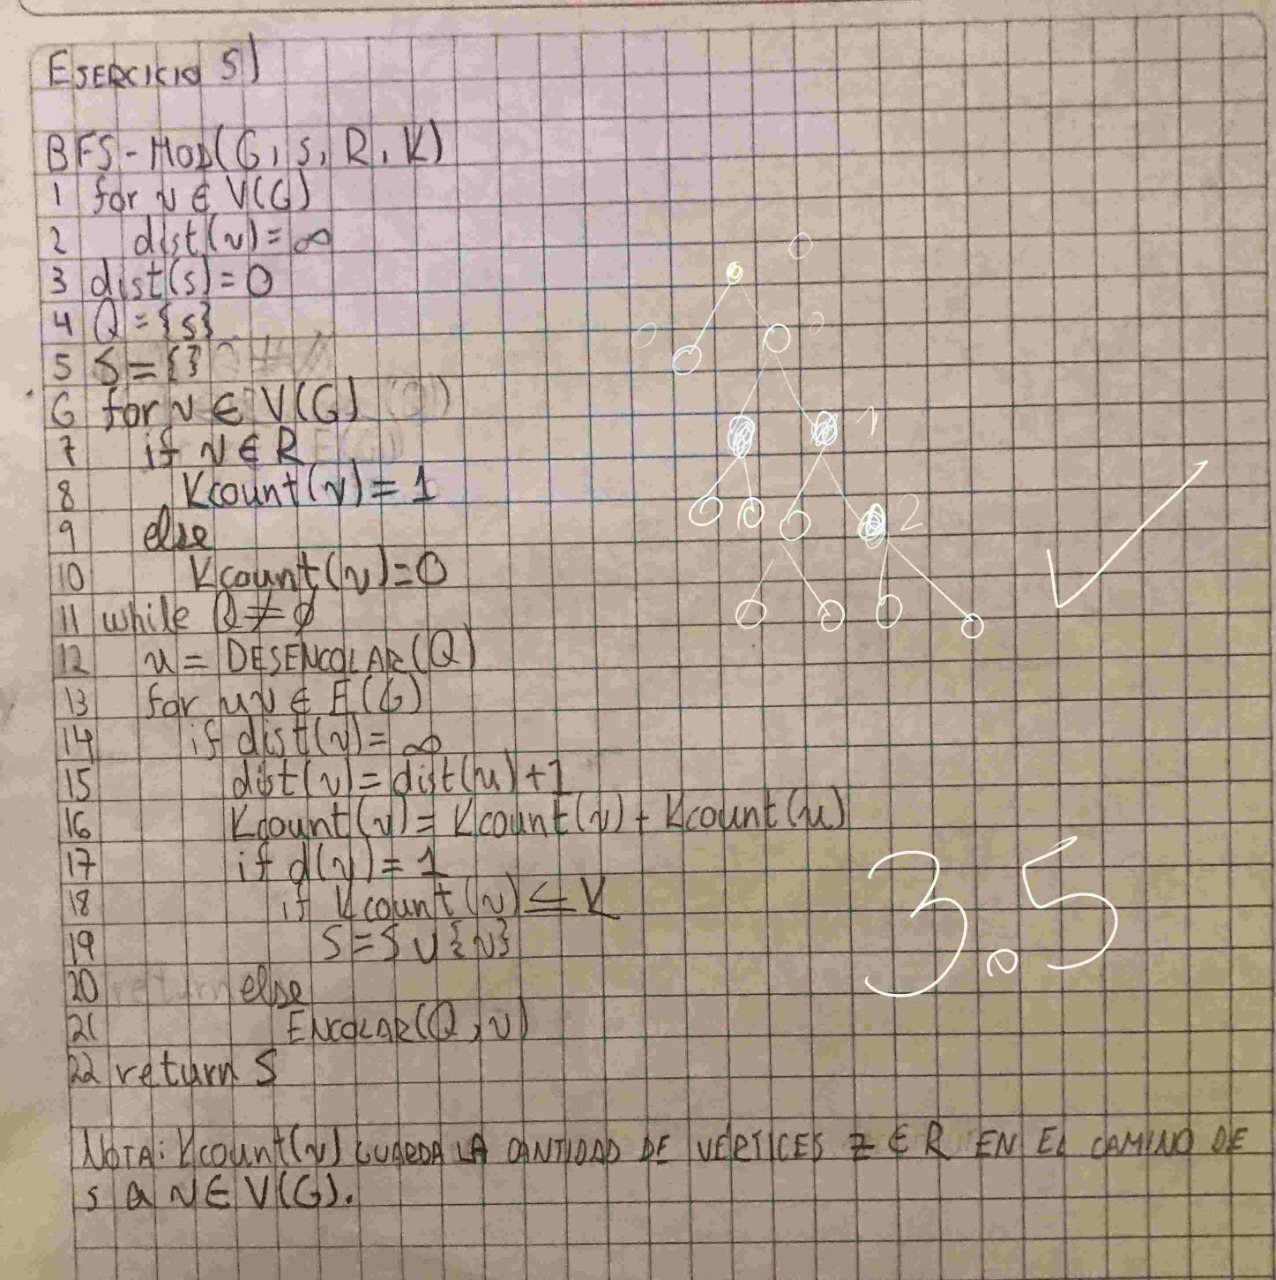 EJERCICIO 5)
BFS-MOD(G, s, R, K)
1 for v ∈ V(G)
2 dist(v) = ∞
3 dist(s) = 0
4 Q = {s}
5 S = {}
6 for v ∈ V(G)
7 if v ∈ R
8 Kcount(v) = 1
9 else
10 Kcount(v) = 0
11 while Q ≠ ∅
12 u = DESENCOLAR(Q)
13 for uv ∈ E(G)
14 if dist(v) = ∞
15 dist(v) = dist(u) + 1
16 Kcount(v) = Kcount(v) + Kcount(u)
17 if d(v) = 1
18 if Kcount(v) ≤ K
19 S = S ∪ {v}
20 else
21 ENCOLAR(Q, v)
22 return S
NOTA: Kcount(v) GUARDA LA CANTIDAD DE VÉRTICES z ∈ R EN EL CAMINO DE
s a v ∈ V(G).
0
0
0
1
2
3.5